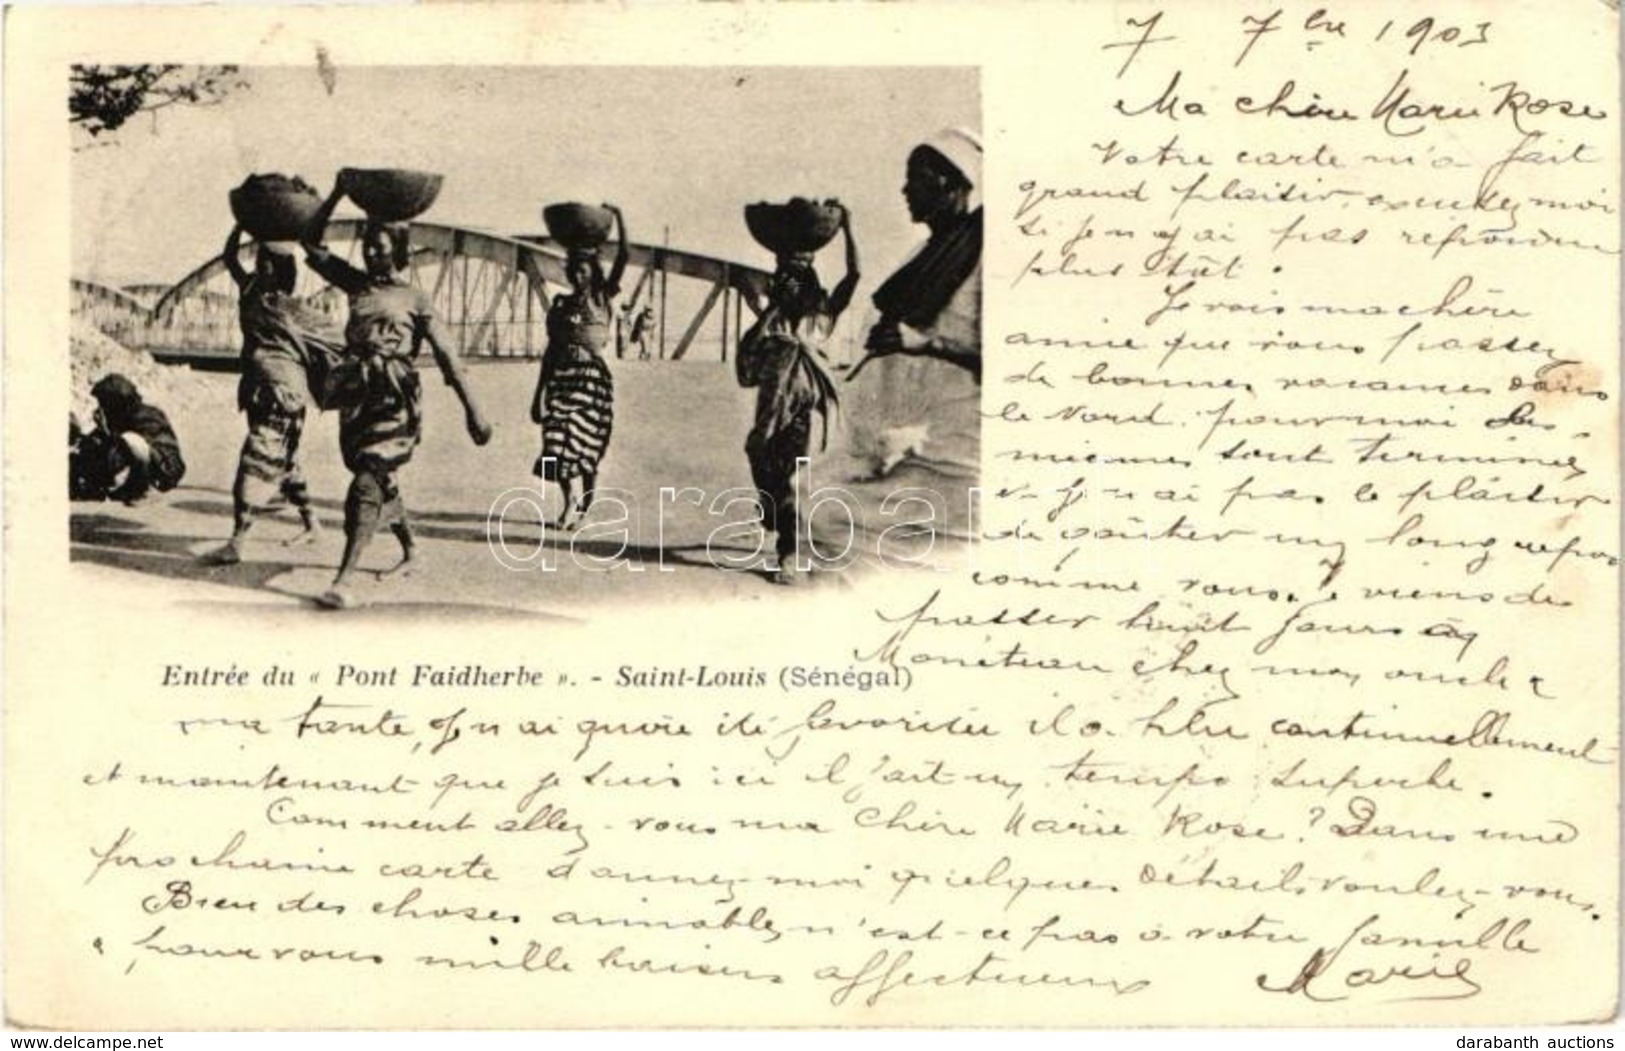 7 7bre 1903
Ma chère Marie Rose
Votre carte m'a fait
grand plaisir, excusez moi
si je n'y ai pas répondu
plus tôt.
Je vois ma chère
amie que vous passez
de bonnes vacances dans
le Nord. pour moi les
miennes sont terminées
je n'ai pas le plaisir
de goûter un long repos
comme vous. Je viens de
passer huit jours à
Monéteau chez mon oncle &
Entrée du « Pont Faidherbe ». - Saint-Louis (Sénégal)
ma tante, je n'ai guère été favorisée il a plu continuellement
et maintenant que je suis ici il fait un temps superbe.
Comment allez-vous ma chère Marie Rose? Dans une
prochaine carte donnez-moi quelques détails voulez-vous.
Bien des choses aimables n'est-ce pas à votre famille
& pour vous mille baisers affectueux Marie
darabanth
www.delcampe.net
darabanth auctions